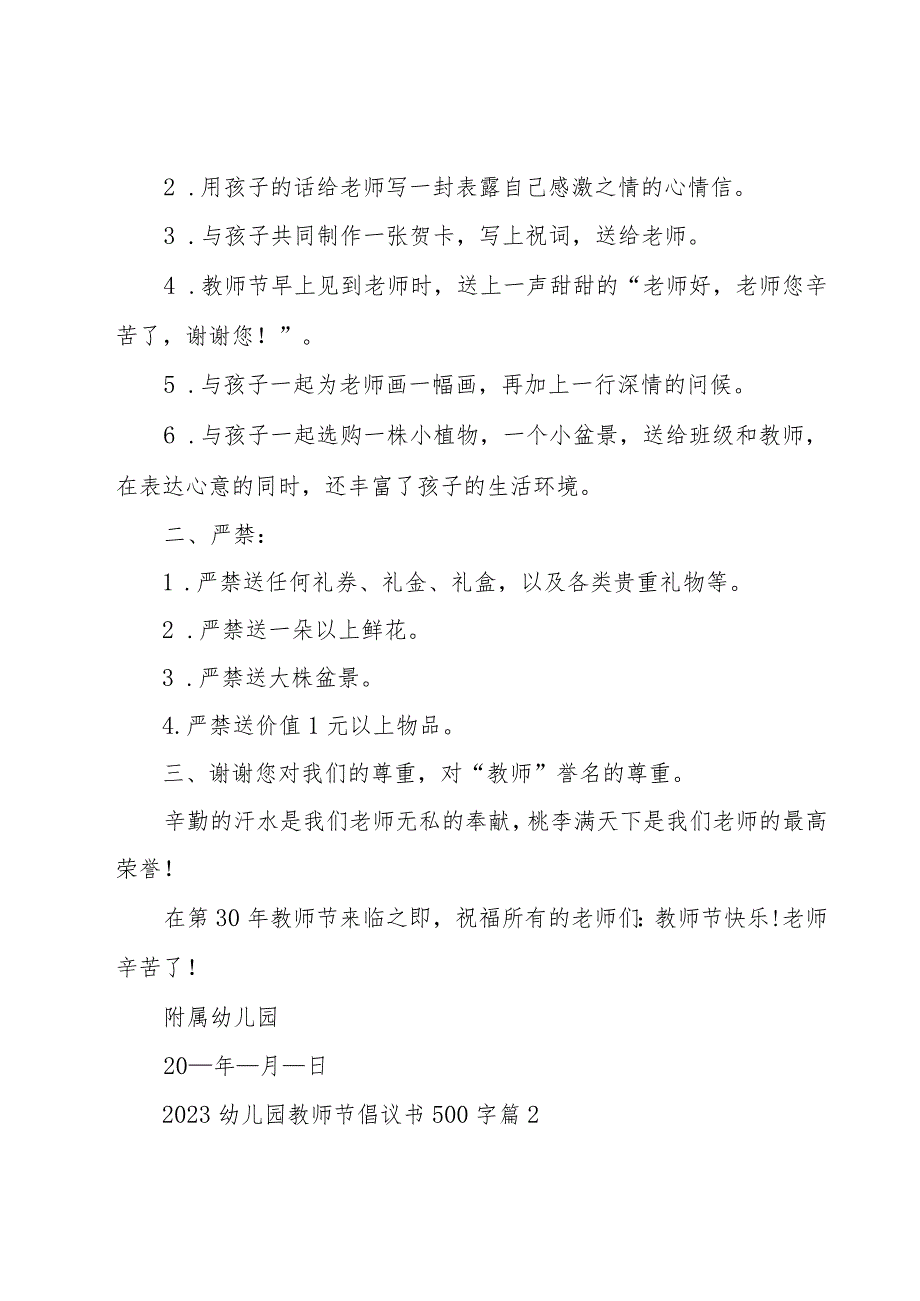 2 .用孩子的话给老师写一封表露自己感激之情的心情信。
3 .与孩子共同制作一张贺卡，写上祝词，送给老师。
4 .教师节早上见到老师时，送上一声甜甜的“老师好，老师您辛
苦了，谢谢您！”。
5 .与孩子一起为老师画一幅画，再加上一行深情的问候。
6 .与孩子一起选购一株小植物，一个小盆景，送给班级和教师，
在表达心意的同时，还丰富了孩子的生活环境。
二、严禁：
1 .严禁送任何礼券、礼金、礼盒，以及各类贵重礼物等。
2 .严禁送一朵以上鲜花。
3 .严禁送大株盆景。
4.严禁送价值1元以上物品。
三、谢谢您对我们的尊重，对“教师”誉名的尊重。
辛勤的汗水是我们老师无私的奉献，桃李满天下是我们老师的最高
荣誉！
在第30年教师节来临之即，祝福所有的老师们：教师节快乐!老师
辛苦了！
附属幼儿园
20—年—月—日
2023幼儿园教师节倡议书500字篇2